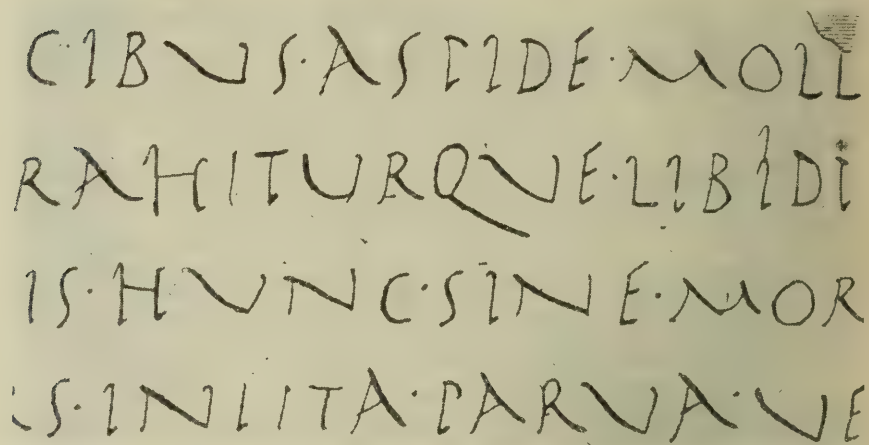 CIBVS·ASPIDE·MOLL
RAHITVRQVE·LIBIDI
IS·HVNC·SINE·MOR
S·INLITA·PARVA·VE